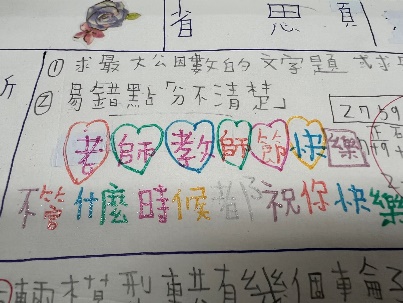 省思
① 求最大公因數的文字題
② 易錯點「分不清楚」
老師教師節快樂
不管什麼時候都祝你快樂
模型
共有幾個車輪